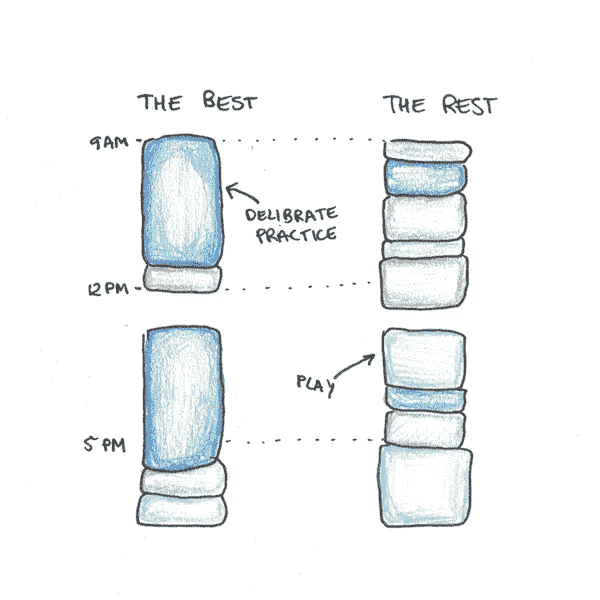 THE BEST
THE REST
9AM
DELIBRATE
PRACTICE
12PM
PLAY
5 PM